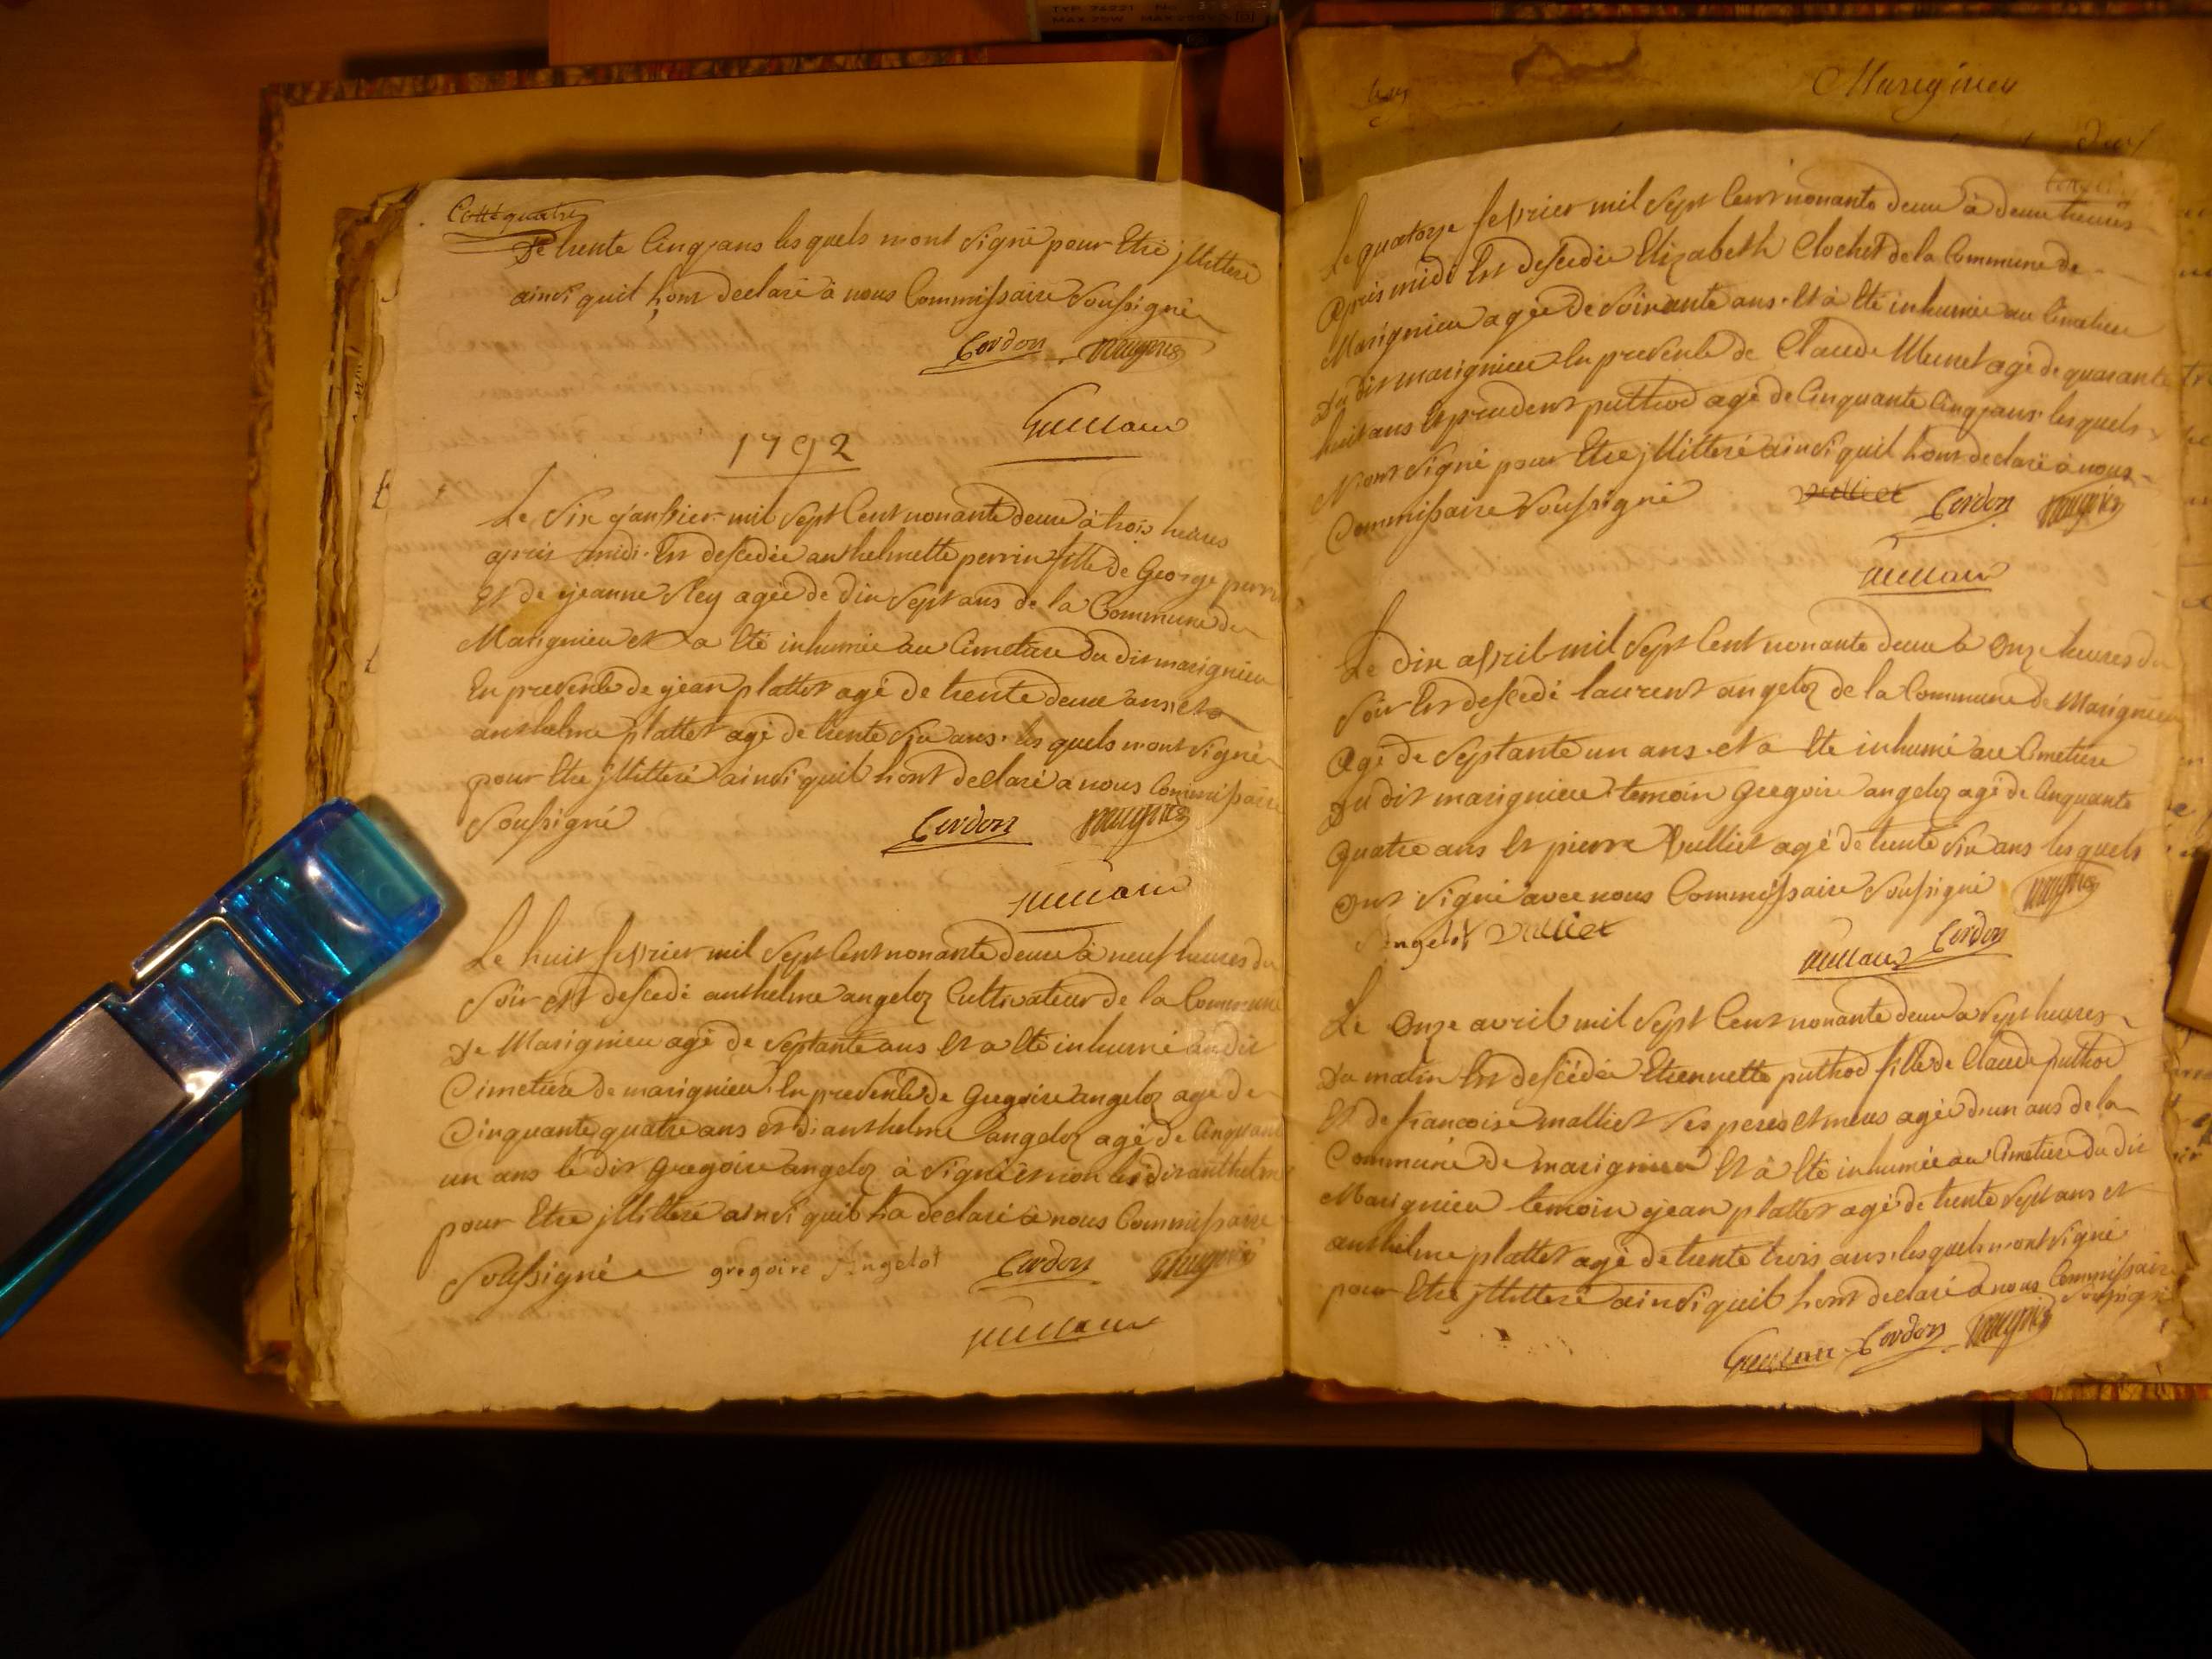 Cotté quatre
De trente Cinq ans les quels n'ont signé pour Etre jllitteré
ainsi quil hont declaré à nous Commissaire Soussigné
Cordon
1792
Le Six janvier mil Sept Cent nonante deux à trois heures
apres midi Est descedée anthelmette perrin fille de George perrin
Et de jeanne Rey agée de dix Sept ans de la Commune de
Marignieu et a Eté inhumée au Cimetiere du dit marignieu
En presence de jean plattet agé de trente deux ans et
anthelme plattet agé de trente Six ans les quels n'ont Signé
pour Etre jllitteré ainsi quil hont declaré a nous Commissaire
Soussigné Cordon
Le huit fevrier mil Sept Cent nonante deux à neuf heures du
Soir est descedé anthelme angeloz Cultivateur de la Commune
De Marignieu agé de Septante ans Et a Eté inhumé au dit
Cimetiere de marignieu En presence de Gregoire angeloz agé de
Cinquante quatre ans et di anthelme angeloz agé de Cinquante
un ans le dit gregoire angeloz à Signé et non le dit anthelme
pour Etre jllitteré ainsi quil ha declaré à nous Commissaire
Soussigné gregoire Angelot Cordon
Marignieu
Le quatorze fevrier mil Sept Cent nonante deux à deux heures
Apres midi Est descedée Elizabeth Clochet de la Commune de
Marignieu agée De Soixante ans Et à Eté inhumée au Cimetiere
Du dit marignieu En presence de Claude Meunet agé de quarante
huit ans Et prudent puthod agé de Cinquante Cinq ans lesquels
N'ont Signé pour Etre jllitteré ainsi quil hont declaré à nous
Commissaire Soussigné Vulliet Cordon
Le dix avril mil Sept Cent nonante deux à Onze heures du
Soir Est descedé laurent angeloz de la Commune de Marignieu
Agé de Septante un ans et a Eté inhumé au Cimetiere
Du dit marignieu temoin Gregoire angeloz agé de Cinquante
Quatre ans Et pierre Vulliet agé de trente Six ans les quels
Ont Signé avec nous Commissaire Soussigné
Angelot Vulliet Cordon
Le Onze avril mil Sept Cent nonante deux a Sept heures
Du matin Est descedée Etiennette puthod fille de Claude puthod
Et de francoise malliet Ses peres et meres agée d'un ans de la
Commune de marignieu Et à Eté inhumée au Cimetiere du dit
Marignieu temoin jean plattet agé de trente Sept ans et
anthelme plattet agé de trente trois ans lesquels n'ont Signé
pour Etre jllitteré ainsi quil hont declaré a nous Commissaire
Soussigné
Cordon